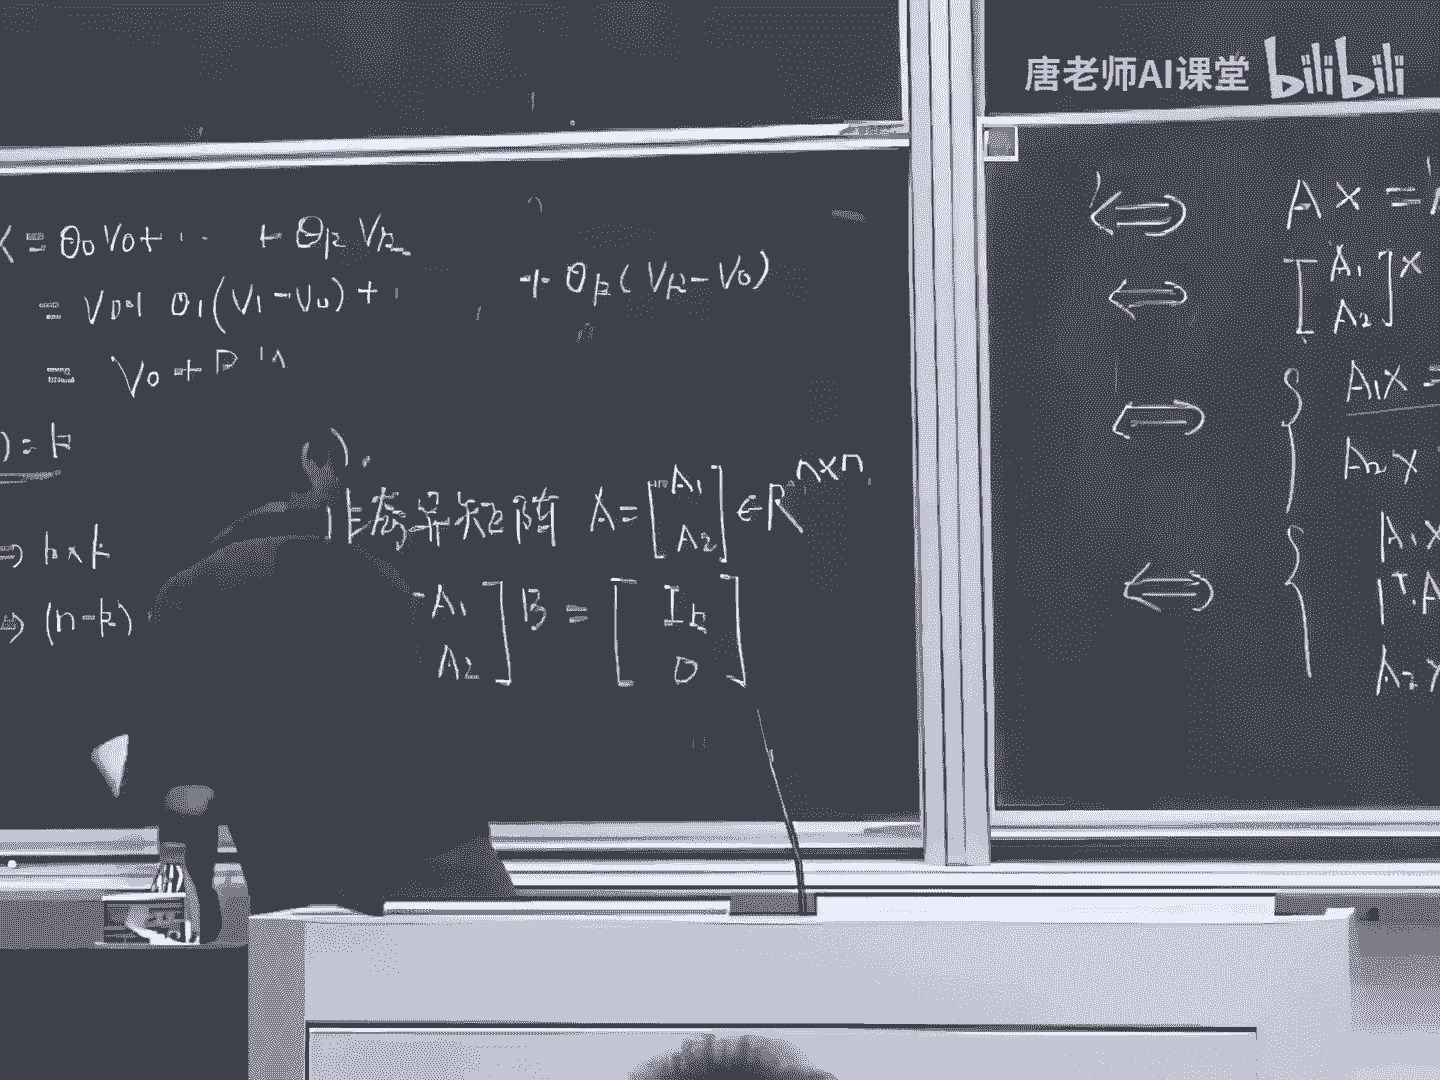 唐老师AI课堂 bilibili
X = θ₀V₀ + ··· + θₖVₖ
= V₀ + θ₁(V₁ - V₀) + + θₖ(Vₖ - V₀)
= V₀ +
) = k
⇒ n×k
⇒ (n-k)
非奇异矩阵 A = [A₁ A₂] ∈ Rⁿˣⁿ
A₁ A₂] B = [Iₖ 0]
⇔ Ax =
⇔ [A₁ A₂] x
⇔ { A₁x =
A₂x
⇔ { A₁x
1ᵀ·A
A₂x